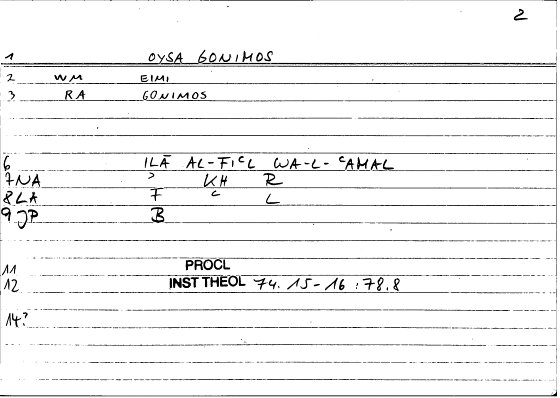 2
1 OYSA GONIMOS
2 WM EIMI
3 RA GONIMOS
6 ILĀ AL-FIʿL WA-L-ʿAMAL
7 NA ʾ KH R
8 LA F ʿ L
9 JP B
11 PROCL
12 INST THEOL 74.15-16:78.8
14?